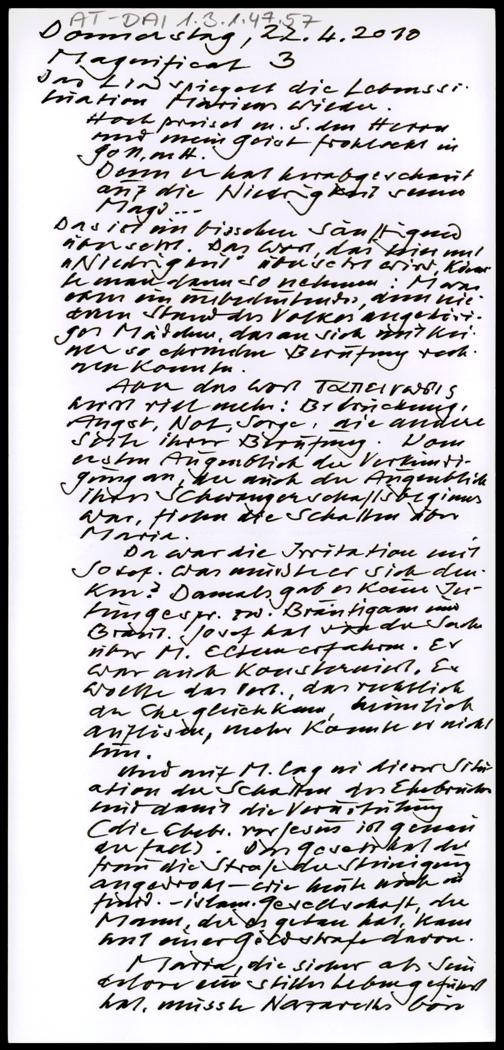 AT-DAI 1.3.1.47.57
Donnerstag, 22.4.2010
Magnificat 3
Das Lied spiegelt die Lebenssi-
tuation Mariens wieder.
Hoch preiset m. S. den Herrn
und mein Geist frohlockt in
Gott, m. H.
Denn er hat herabgeschaut
auf die Niedrigkeit seiner
Magd...
Das ist ein bisschen sänftigend
übersetzt. Das Wort, das hier mit
"Niedrigkeit" übersetzt wird, könn-
te man dann so nehmen: Maria
war ein unbedeutendes, dem nie-
deren Stand des Volkes angehöri-
ges Mädchen, das an sich mit kei-
ner so ehrenden Berufung rech-
nen konnte.
Aber das Wort ταπείνωσις
heisst viel mehr: Bedrückung,
Angst, Not, Sorge, die andere
Seite ihrer Berufung. Vom
ersten Augenblick der Verkündi-
gung an, der auch der Augenblick
ihres Schwangerschaftsbeginnes
war, fielen die Schatten über
Maria.
Da war die Irritation mit
Josef. Was musste er sich den-
ken? Damals gab es keine
zw. Bräutigam und
Braut. Josef hat von der Sache
über M. Eltern erfahren. Er
war auch konsterniert. Er
wollte das Verl., das rechtlich
der Ehe gleich kam, heimlich
auflösen, mehr konnte er nicht
tun.
Und auf M. lag in dieser Situ-
ation der Schatten des Ehebruchs
und damit die Verurteilung
(die Eheb. vor Jesus ist genau
der Fall). Das Gesetz hat der
Frau die Strafe der Steinigung
angedroht – wie heute noch in
fund. - islam. Gesellschaft, der
Mann, der es getan hat, kam
mit einer Geldstrafe davon.
Maria, die sicher als
ein stilles Leben geführt
hat, musste Nazareths böse